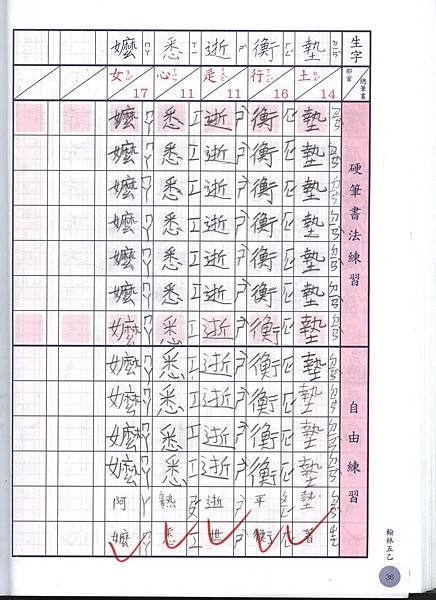 生字 部首 總筆畫 硬筆書法練習 自由練習
墊 土 14 墊墊墊墊墊墊墊墊墊墊墊墊著
衡 行 16 衡衡衡衡衡衡衡衡衡衡衡平衡
逝 是 11 逝逝逝逝逝逝逝逝逝逝逝逝世
悉 心 11 悉悉悉悉悉悉悉悉悉悉悉熟悉
嬤 女 17 嬤嬤嬤嬤嬤嬤嬤嬤嬤嬤嬤阿嬤
翰林五乙
36